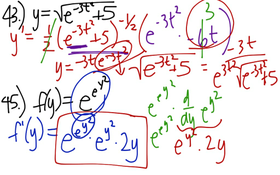 43.) y = √(e^(-3t²)+5)
y' = 1/2 (e^(-3t²)+5)^(-1/2) (e^(-3t²) · -6t) 3
y = -3t(e^(-3t²)) / √(e^(-3t²)+5) = -3t / e^(3t²)√(e^(-3t²)+5)
45.) f(y) = e^(e^(y²))
e^(e^(y²)) · d/dy e^(y²)
f'(y) = e^(e^(y²)) · e^(y²) · 2y
e^(e^(y²)) · e^(y²) · 2y